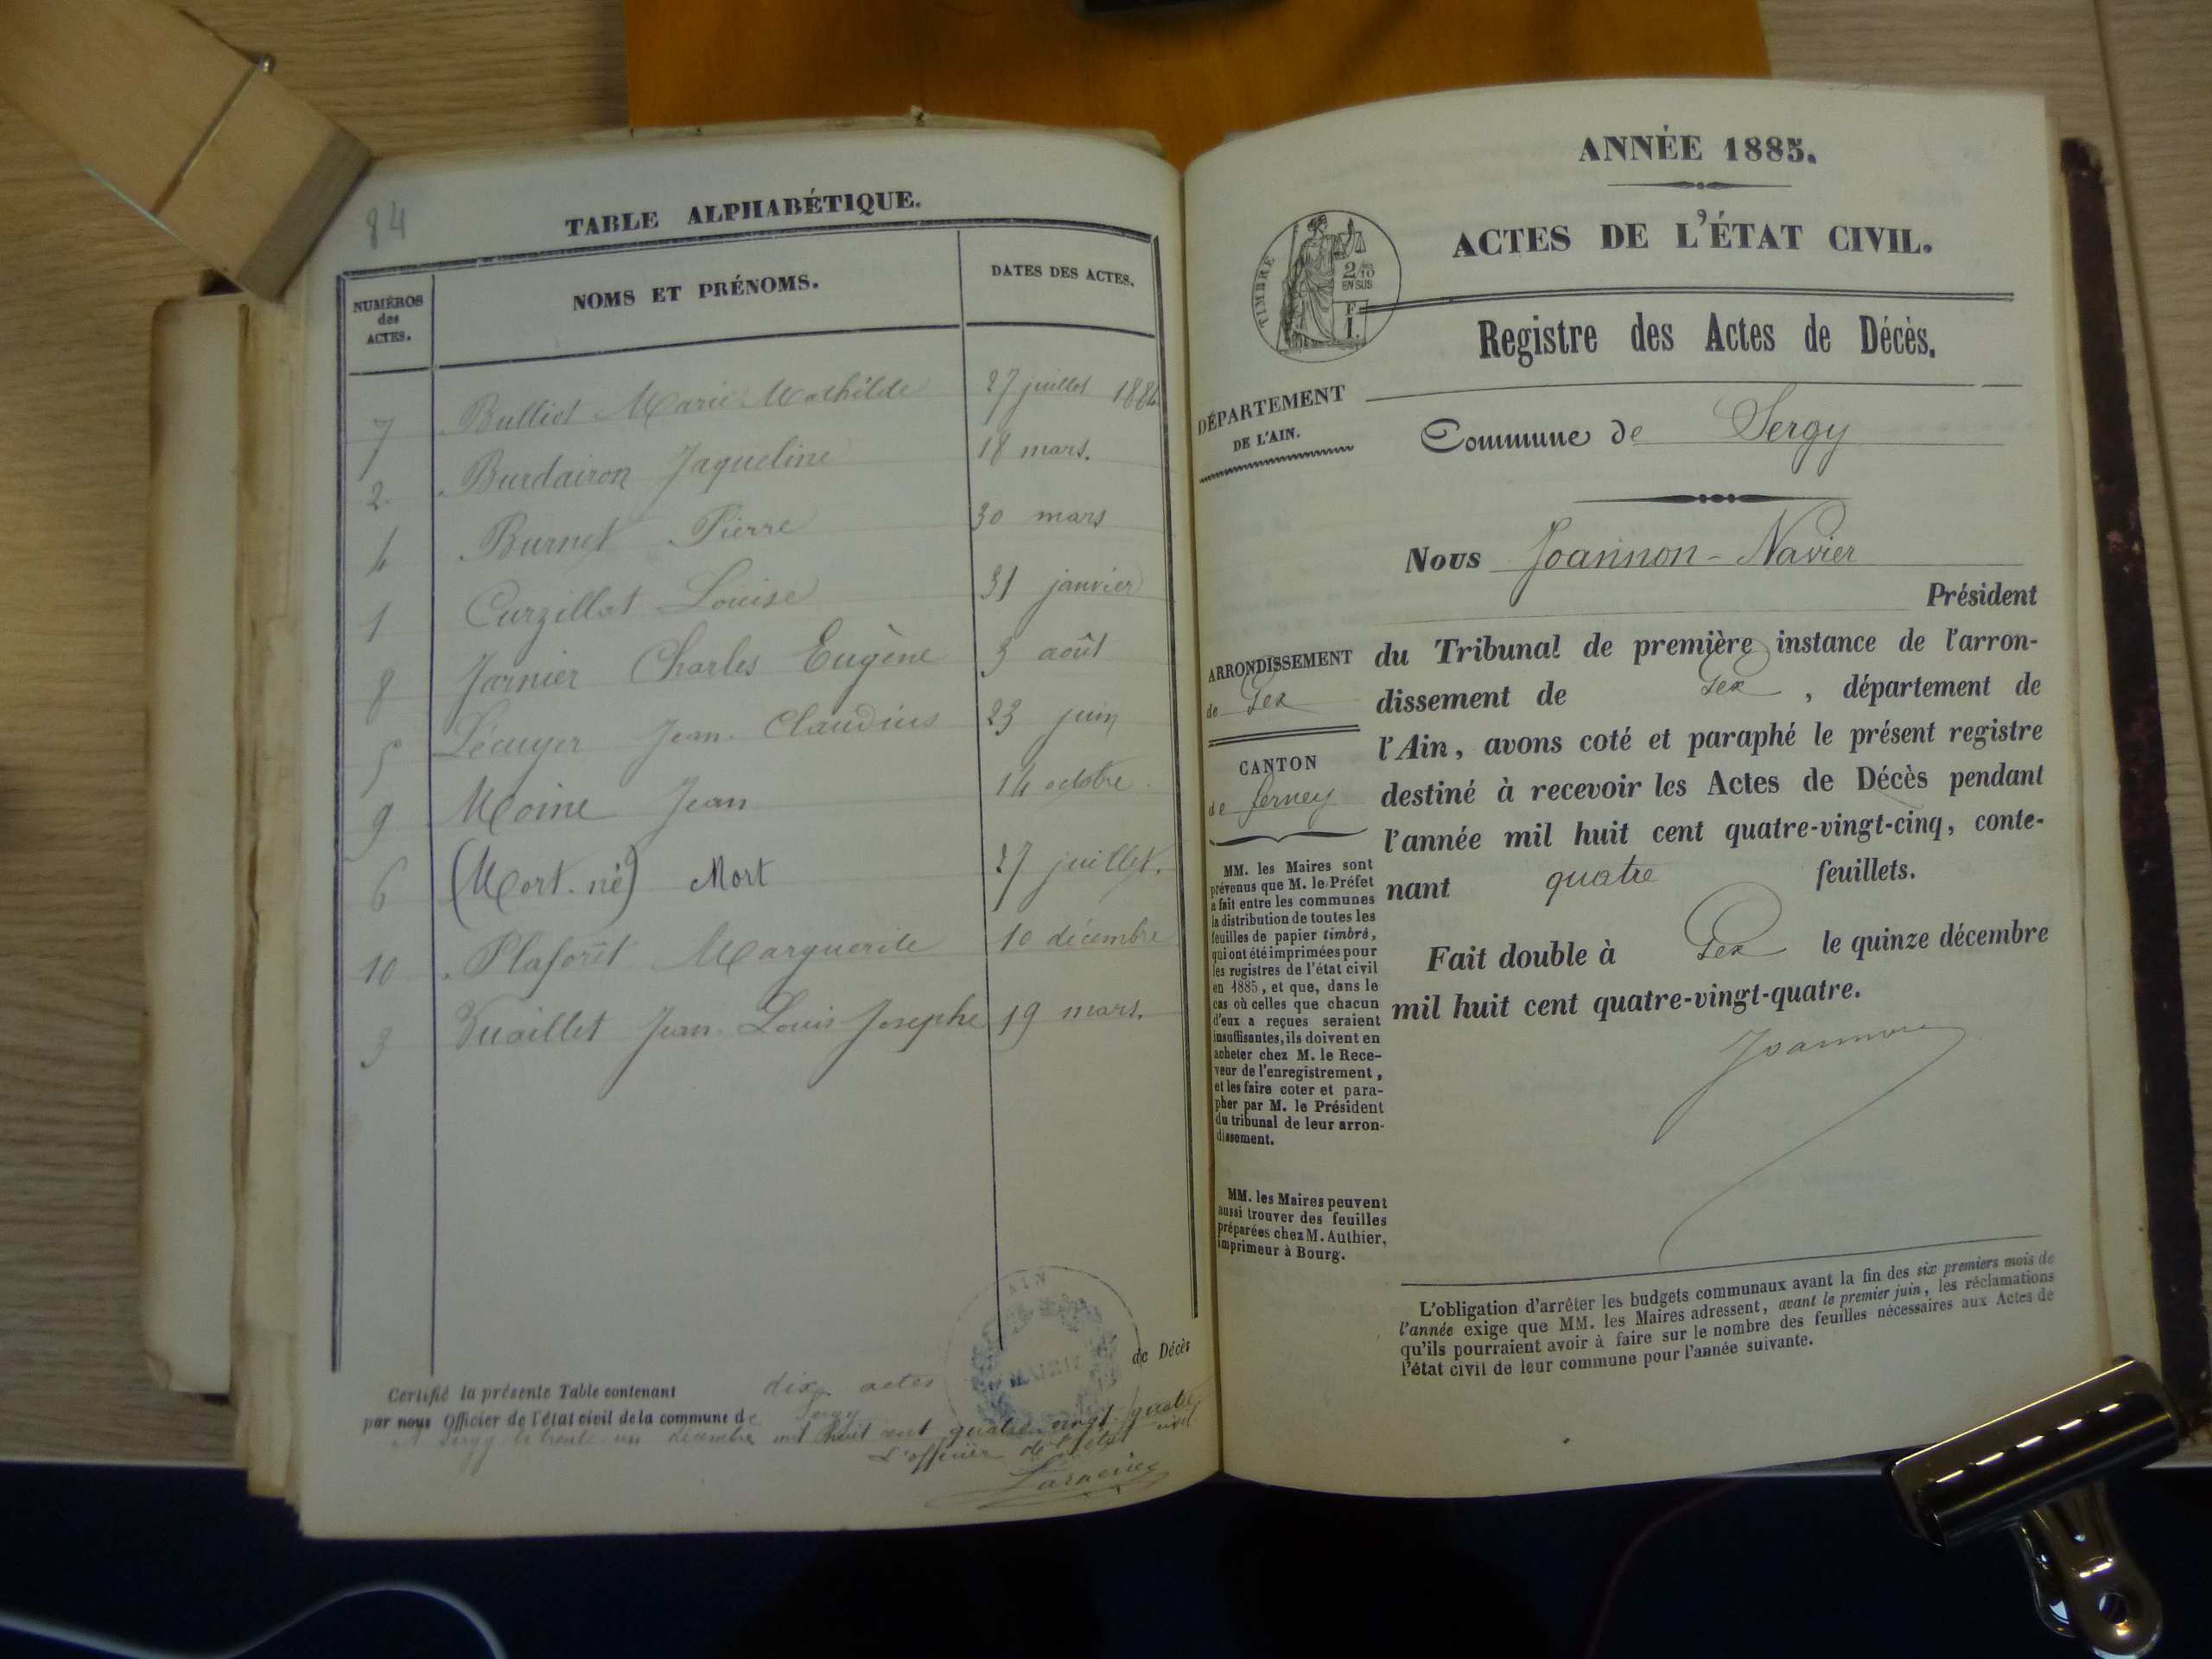 84
TABLE ALPHABÉTIQUE.
NUMÉROS des ACTES. NOMS ET PRÉNOMS. DATES DES ACTES.
7 Bulliet Marie Mathilde 27 juillet 1884
2 Burdairon Jaqueline 18 mars.
4 Burnet Pierre 30 mars
1 Curzillat Louise 31 janvier
8 Jarnier Charles Eugène 3 août
5 Lécuyer Jean-Claudius 23 juin
9 Moine Jean 14 octobre.
6 (Mort-né) Mort 27 juillet.
10 Plaforêt Marguerite 10 décembre
3 Vuaillet Jean-Louis Josephe 19 mars.
Certifié la présente Table contenant dix actes de Décès
par nous Officier de l'état civil de la commune de Sergy
A Sergy le trente un décembre mil huit cent quatre-vingt-quatre
L'officier de l'état civil
AIN
MAIRIE
ANNÉE 1885.
ACTES DE L'ÉTAT CIVIL.
TIMBRE
2/10
EN SUS
F.
1.
Registre des Actes de Décès.
DÉPARTEMENT
DE L'AIN.
Commune de Sergy
Nous Joannon-Navier
Président
du Tribunal de première instance de l'arron-
dissement de Gex, département de
l'Ain, avons coté et paraphé le présent registre
destiné à recevoir les Actes de Décès pendant
l'année mil huit cent quatre-vingt-cinq, conte-
nant quatre feuillets.
Fait double à Gex le quinze décembre
mil huit cent quatre-vingt-quatre.
Joannon
ARRONDISSEMENT
de Gex
CANTON
de Ferney
MM. les Maires sont
prévenus que M. le Préfet
a fait entre les communes
la distribution de toutes les
feuilles de papier timbré,
qui ont été imprimées pour
les registres de l'état civil
en 1885, et que, dans le
cas où celles que chacun
d'eux a reçues seraient
insuffisantes, ils doivent en
acheter chez M. le Rece-
veur de l'enregistrement,
et les faire coter et para-
pher par M. le Président
du tribunal de leur arron-
dissement.
MM. les Maires peuvent
aussi trouver des feuilles
préparées chez M. Authier,
imprimeur à Bourg.
L'obligation d'arrêter les budgets communaux avant la fin des six premiers mois de
l'année exige que MM. les Maires adressent, avant le premier juin, les réclamations
qu'ils pourraient avoir à faire sur le nombre des feuilles nécessaires aux Actes de
l'état civil de leur commune pour l'année suivante.